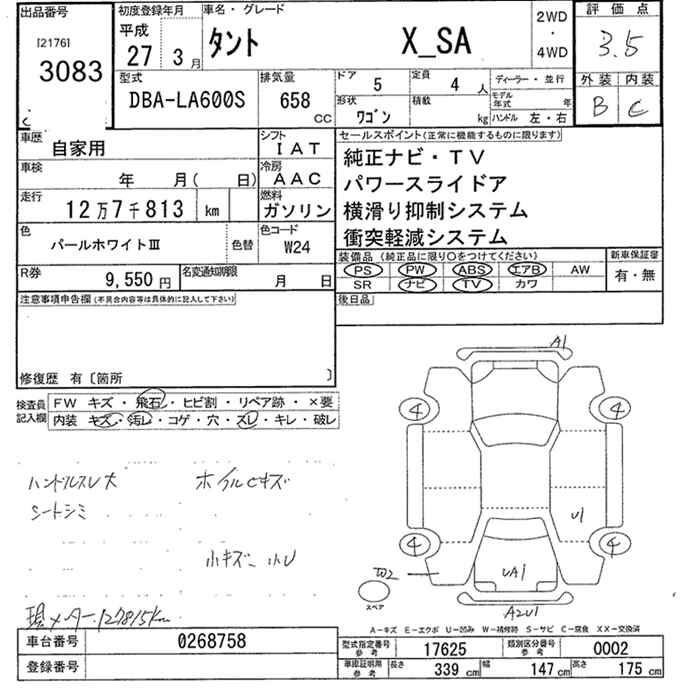 出品番号
[2176]
3083
C
初度登録年月
平成
27 3月
車名・グレード
タント X_SA
2WD
・
4WD
評価点
3.5
外装 内装
B C
型式
DBA-LA600S
排気量
658
CC
ドア 5 定員 4 人
ディーラー・並行
形状 ワゴン 積載 kg
モデル年式 年
ハンドル 左・右
車歴 自家用
シフト IAT
車検 年 月( 日)
冷房 AAC
走行 12万7千813 km
燃料 ガソリン
色 パールホワイトⅢ 色替
色コード W24
R券 9,550円
名変通知期限 月 日
セールスポイント(正常に機能するものに限ります)
純正ナビ・TV
パワースライドア
横滑り抑制システム
衝突軽減システム
装備品 (純正品に限り○をつけてください)
PS PW ABS エアB AW
SR ナビ TV カワ
新車保証書
有・無
注意事項申告欄(不具合内容等は具体的に記入して下さい)
後日品
修復歴 有〔箇所 〕
検査員記入欄
FW キズ・飛石・ヒビ割・リペア跡・×要
内装 キズ・汚レ・コゲ・穴・スレ・キレ・破レ
ハンドルスレ大 ホイルCキズ
シートシミ
小キズ 小U
現メーター127815km
A1
4 4
U1
4 4
W2
UA1
スペア
A2U1
A-キズ E-エクボ U-凹み W-補修跡 S-サビ C-腐食 XX-交換済
車台番号 0268758
登録番号
型式指定番号 参考 17625
類別区分番号 参考 0002
車庫証明用 参考 長さ 339 cm 幅 147 cm 高さ 175 cm